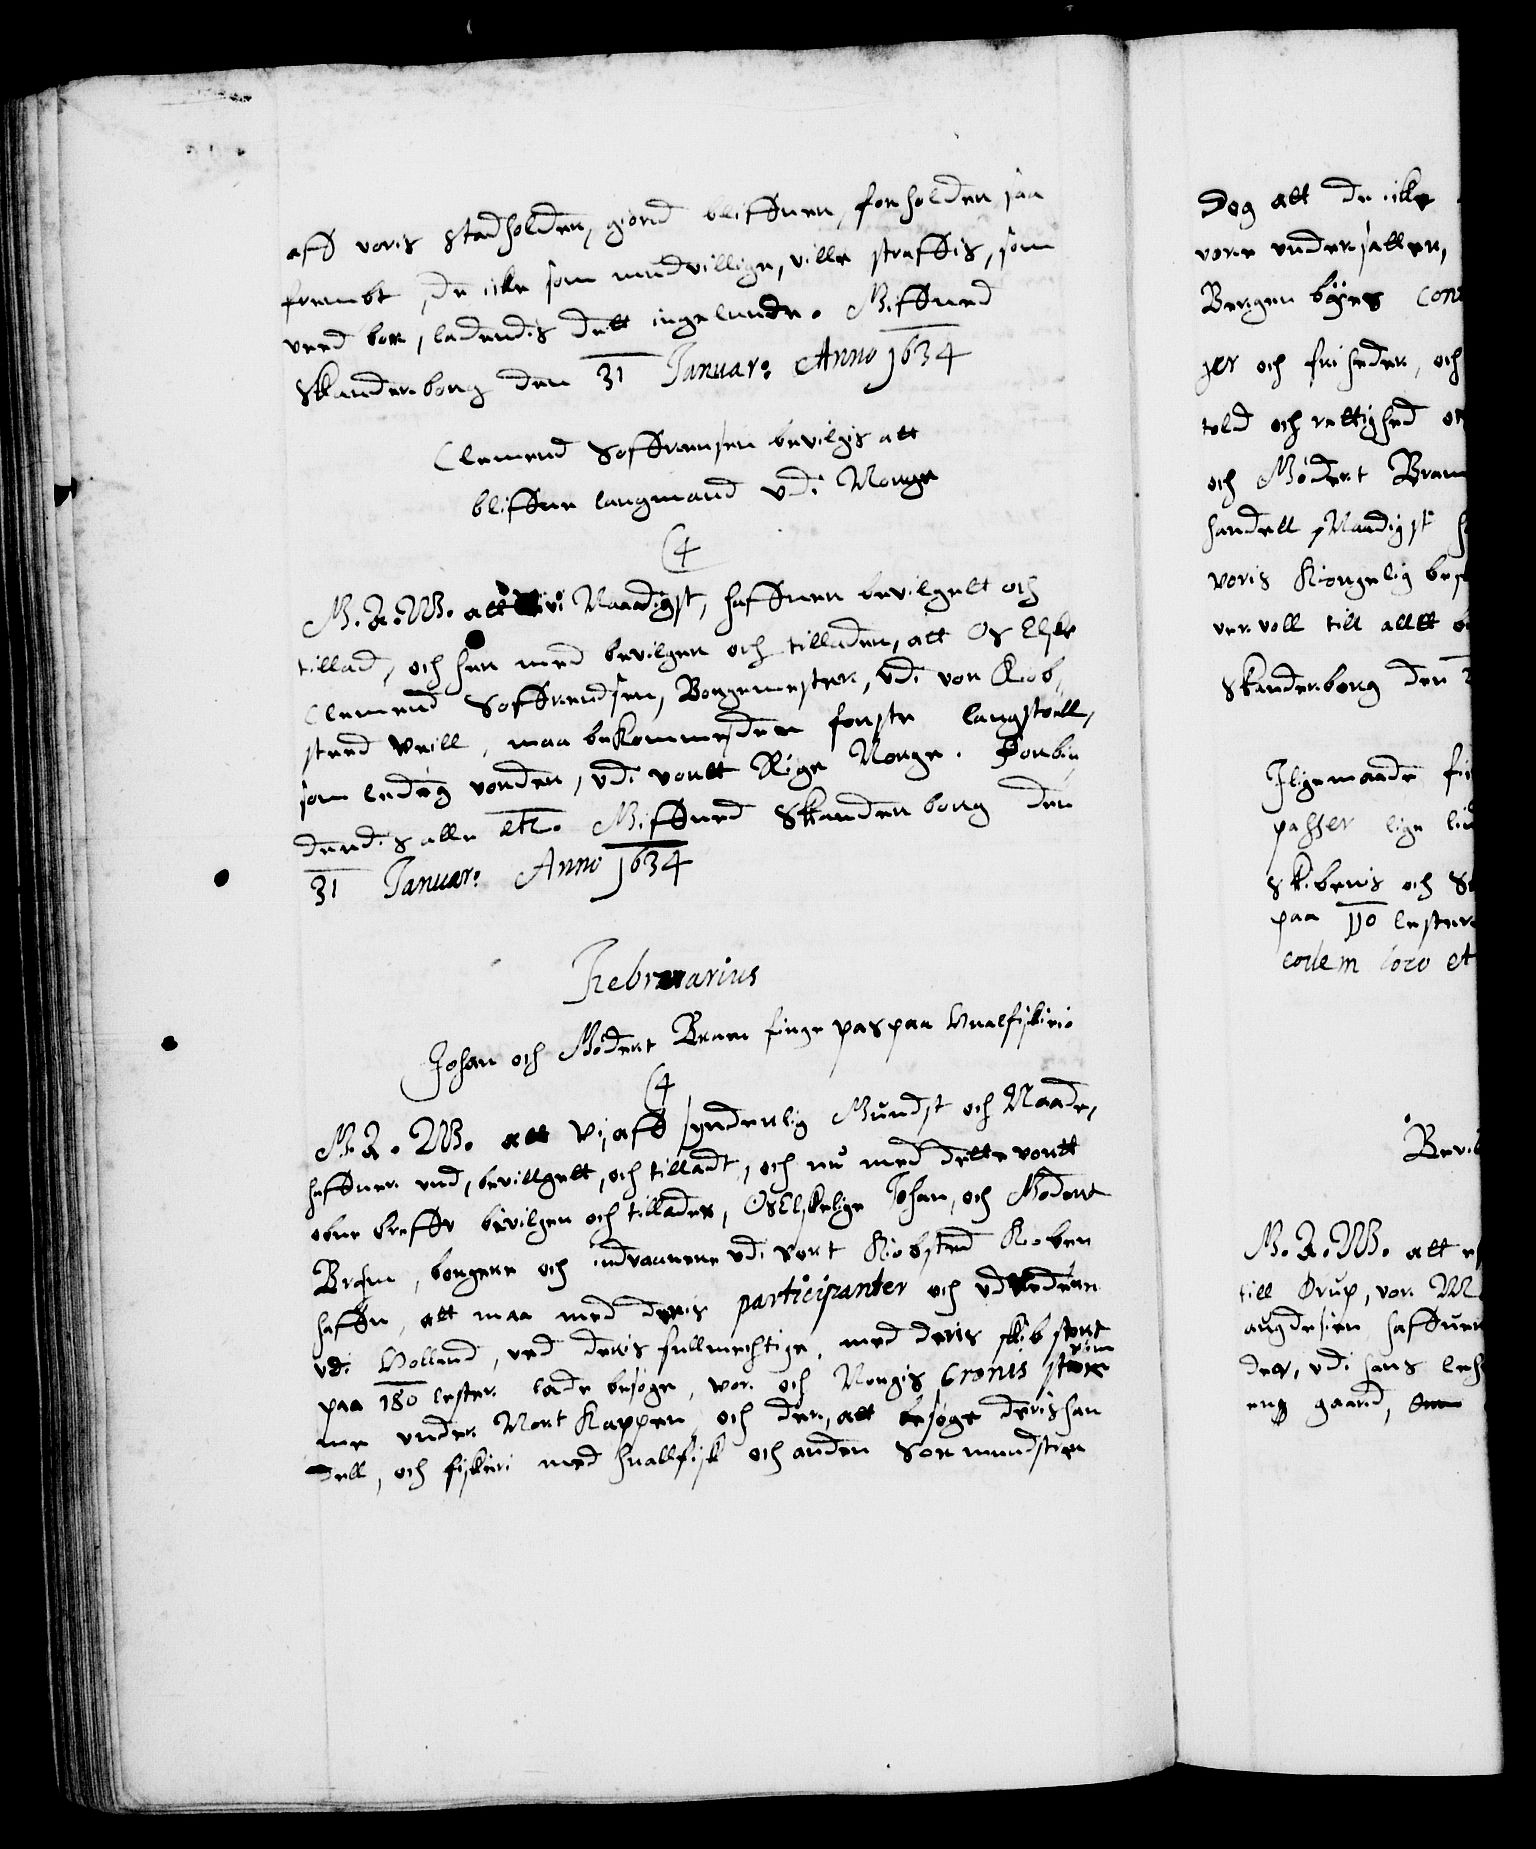 aff voris Stadholder, giord bliffuer, forholder saa
frembt, de icke som mudvillige, ville straffis, som
ved bør, ladendis dett ingelunde. Giffued
Skanderborg den 31 Januar: Anno 1634
Clemend Soffrensen bevilgis att
bliffue laugmand vdi Norge
C4
G. A. W. att vi Naadigst, haffuer bevilgett och
tillad, och her med bevilger och tillader, att Os Elske
Clemend Soffrendsen, Borgemester, vdi vor Kiøb,
sted Weill, maa bekomme den første laugstoell,
som ledig vorder, vdi vortt Rige Norge. Forbiu
dendis alle etc. Giffued Skanderborg den
31 Januar: Anno 1634
Februarius
Johan och Gødert Bram finge pas paa Hualfiskerie
C4
G. A. W. att Vi, aff synderlig Gundst och Naade,
haffuer und, bevillgett, och tilladt, och nu med dette vortt
obne breff bevilger och tillader, Os Elskelige Johan, och Gødert
Bram, borgere och indvaanere vdi vort Kiøbsted Kiøben
haffn, att maa med deris participanter och udreedere
vdi Holland, ved deris fullmechtige, med deris skib stort
paa 180 lester lade besøge, vor och Norgis Cronis strøm
me vnder Nort Kappen, och der, att besøge deris han
dell, och fiskeri med huallfisk och anden Soe mundster
Dog att de icke
vore vndersatter,
Bergen byes con
ger och friheder, och
told och rettighed
och Gødert Bram
handell Naadigst
voris Kongelig be
ver. voll till alltt
Skanderborg den
Iligemaade
passer lige
Skiberis och
paa 110 lester
eodem loco et
Bevil
G. A. W. att
till Ørup, vor M
augdesien haffuer
der, vdi hans leh
eng gaard,